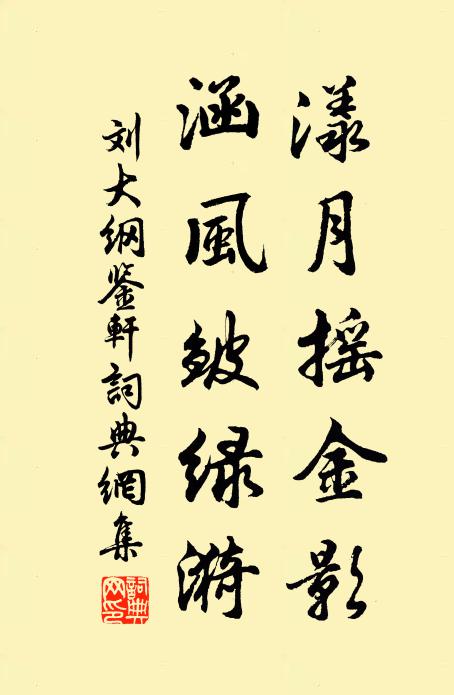 漾月摇金影
涵風皴绿漪
刘大纲鉴軒詞典網集
詞典